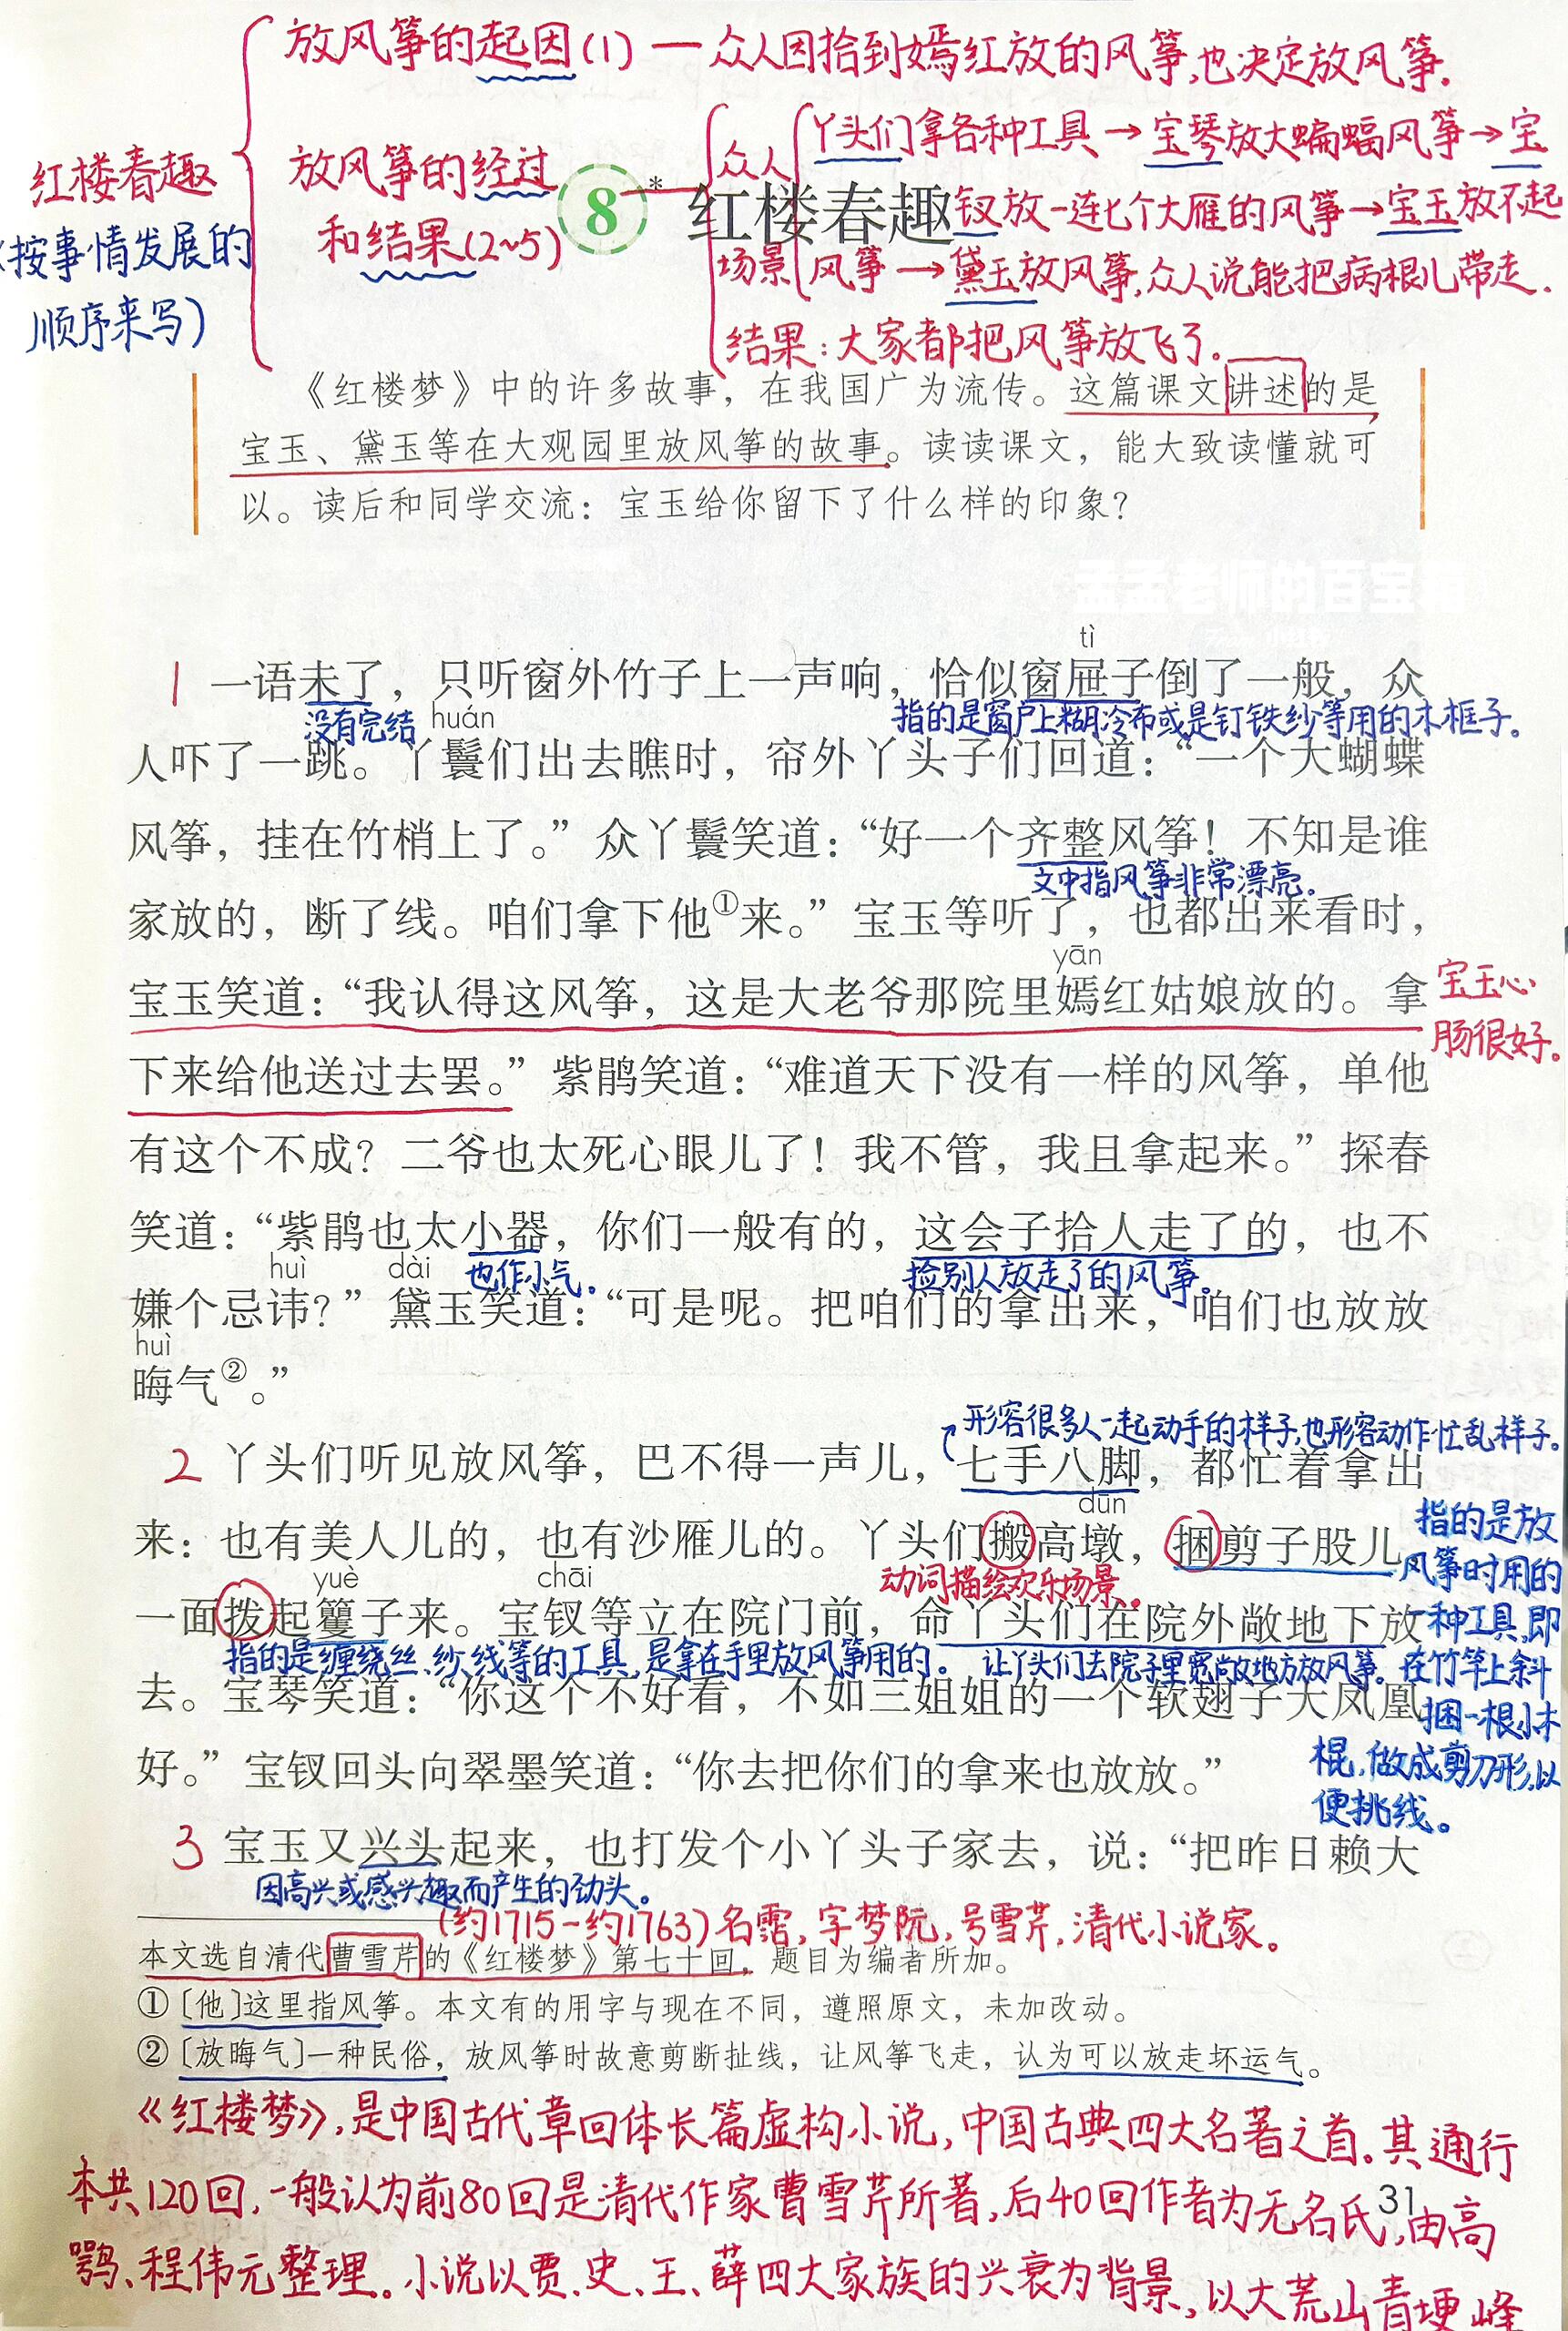 放风筝的起因(1)—众人因拾到嫣红放的风筝,也决定放风筝.
红楼春趣
(按事情发展的
顺序来写)
放风筝的经过
和结果(2~5)
众人
场景
丫头们拿各种工具→宝琴放大蝙蝠风筝→宝
钗放一连七个大雁的风筝→宝玉放不起
风筝→黛玉放风筝,众人说能把病根儿带走.
结果:大家都把风筝放飞了.
8* 红楼春趣
《红楼梦》中的许多故事，在我国广为流传。这篇课文讲述的是
宝玉、黛玉等在大观园里放风筝的故事。读读课文，能大致读懂就可
以。读后和同学交流：宝玉给你留下了什么样的印象？
孟孟老师的百宝箱
tì
1 一语未了，只听窗外竹子上一声响，恰似窗屉子倒了一般，众
没有完结 huán 指的是窗户上糊冷布或是钉铁纱等用的木框子。
人吓了一跳。丫鬟们出去瞧时，帘外丫头子们回道：“一个大蝴蝶
风筝，挂在竹梢上了。”众丫鬟笑道：“好一个齐整风筝！不知是谁
文中指风筝非常漂亮.
家放的，断了线。咱们拿下他①来。”宝玉等听了，也都出来看时，
yān
宝玉笑道：“我认得这风筝，这是大老爷那院里嫣红姑娘放的。拿
宝玉心
肠很好。
下来给他送过去罢。”紫鹃笑道：“难道天下没有一样的风筝，单他
有这个不成？二爷也太死心眼儿了！我不管，我且拿起来。”探春
笑道：“紫鹃也太小器，你们一般有的，这会子拾人走了的，也不
huì dài 也作小气。 捡别人放走了的风筝。
嫌个忌讳？”黛玉笑道：“可是呢。把咱们的拿出来，咱们也放放
huì
晦气②。”
形容很多人一起动手的样子,也形容动作忙乱样子。
2 丫头们听见放风筝，巴不得一声儿，七手八脚，都忙着拿出
dūn
来：也有美人儿的，也有沙雁儿的。丫头们搬高墩，捆剪子股儿，
动词描绘欢乐场景。
指的是放
风筝时用的
一种工具,即
在竹竿上斜
捆一根小木
棍,做成剪刀形,以
便挑线。
yuè chāi
一面拨起籰子来。宝钗等立在院门前，命丫头们在院外敞地下放
指的是缠绕丝、纱、线等的工具,是拿在手里放风筝用的。 让丫头们去院子里宽敞地方放风筝。
去。宝琴笑道：“你这个不好看，不如三姐姐的一个软翅子大凤凰
好。”宝钗回头向翠墨笑道：“你去把你们的拿来也放放。”
3 宝玉又兴头起来，也打发个小丫头子家去，说：“把昨日赖大
因高兴或感兴趣而产生的劲头。
(约1715-约1763)名霑,字梦阮,号雪芹,清代小说家。
本文选自清代曹雪芹的《红楼梦》第七十回，题目为编者所加。
①〔他〕这里指风筝。本文有的用字与现在不同，遵照原文，未加改动。
②〔放晦气〕一种民俗，放风筝时故意剪断扯线，让风筝飞走，认为可以放走坏运气。
《红楼梦》,是中国古代章回体长篇虚构小说,中国古典四大名著之首。其通行
本共120回,一般认为前80回是清代作家曹雪芹所著,后40回作者为无名氏,由高
31
鹗、程伟元整理。小说以贾、史、王、薛四大家族的兴衰为背景,以大荒山青埂峰